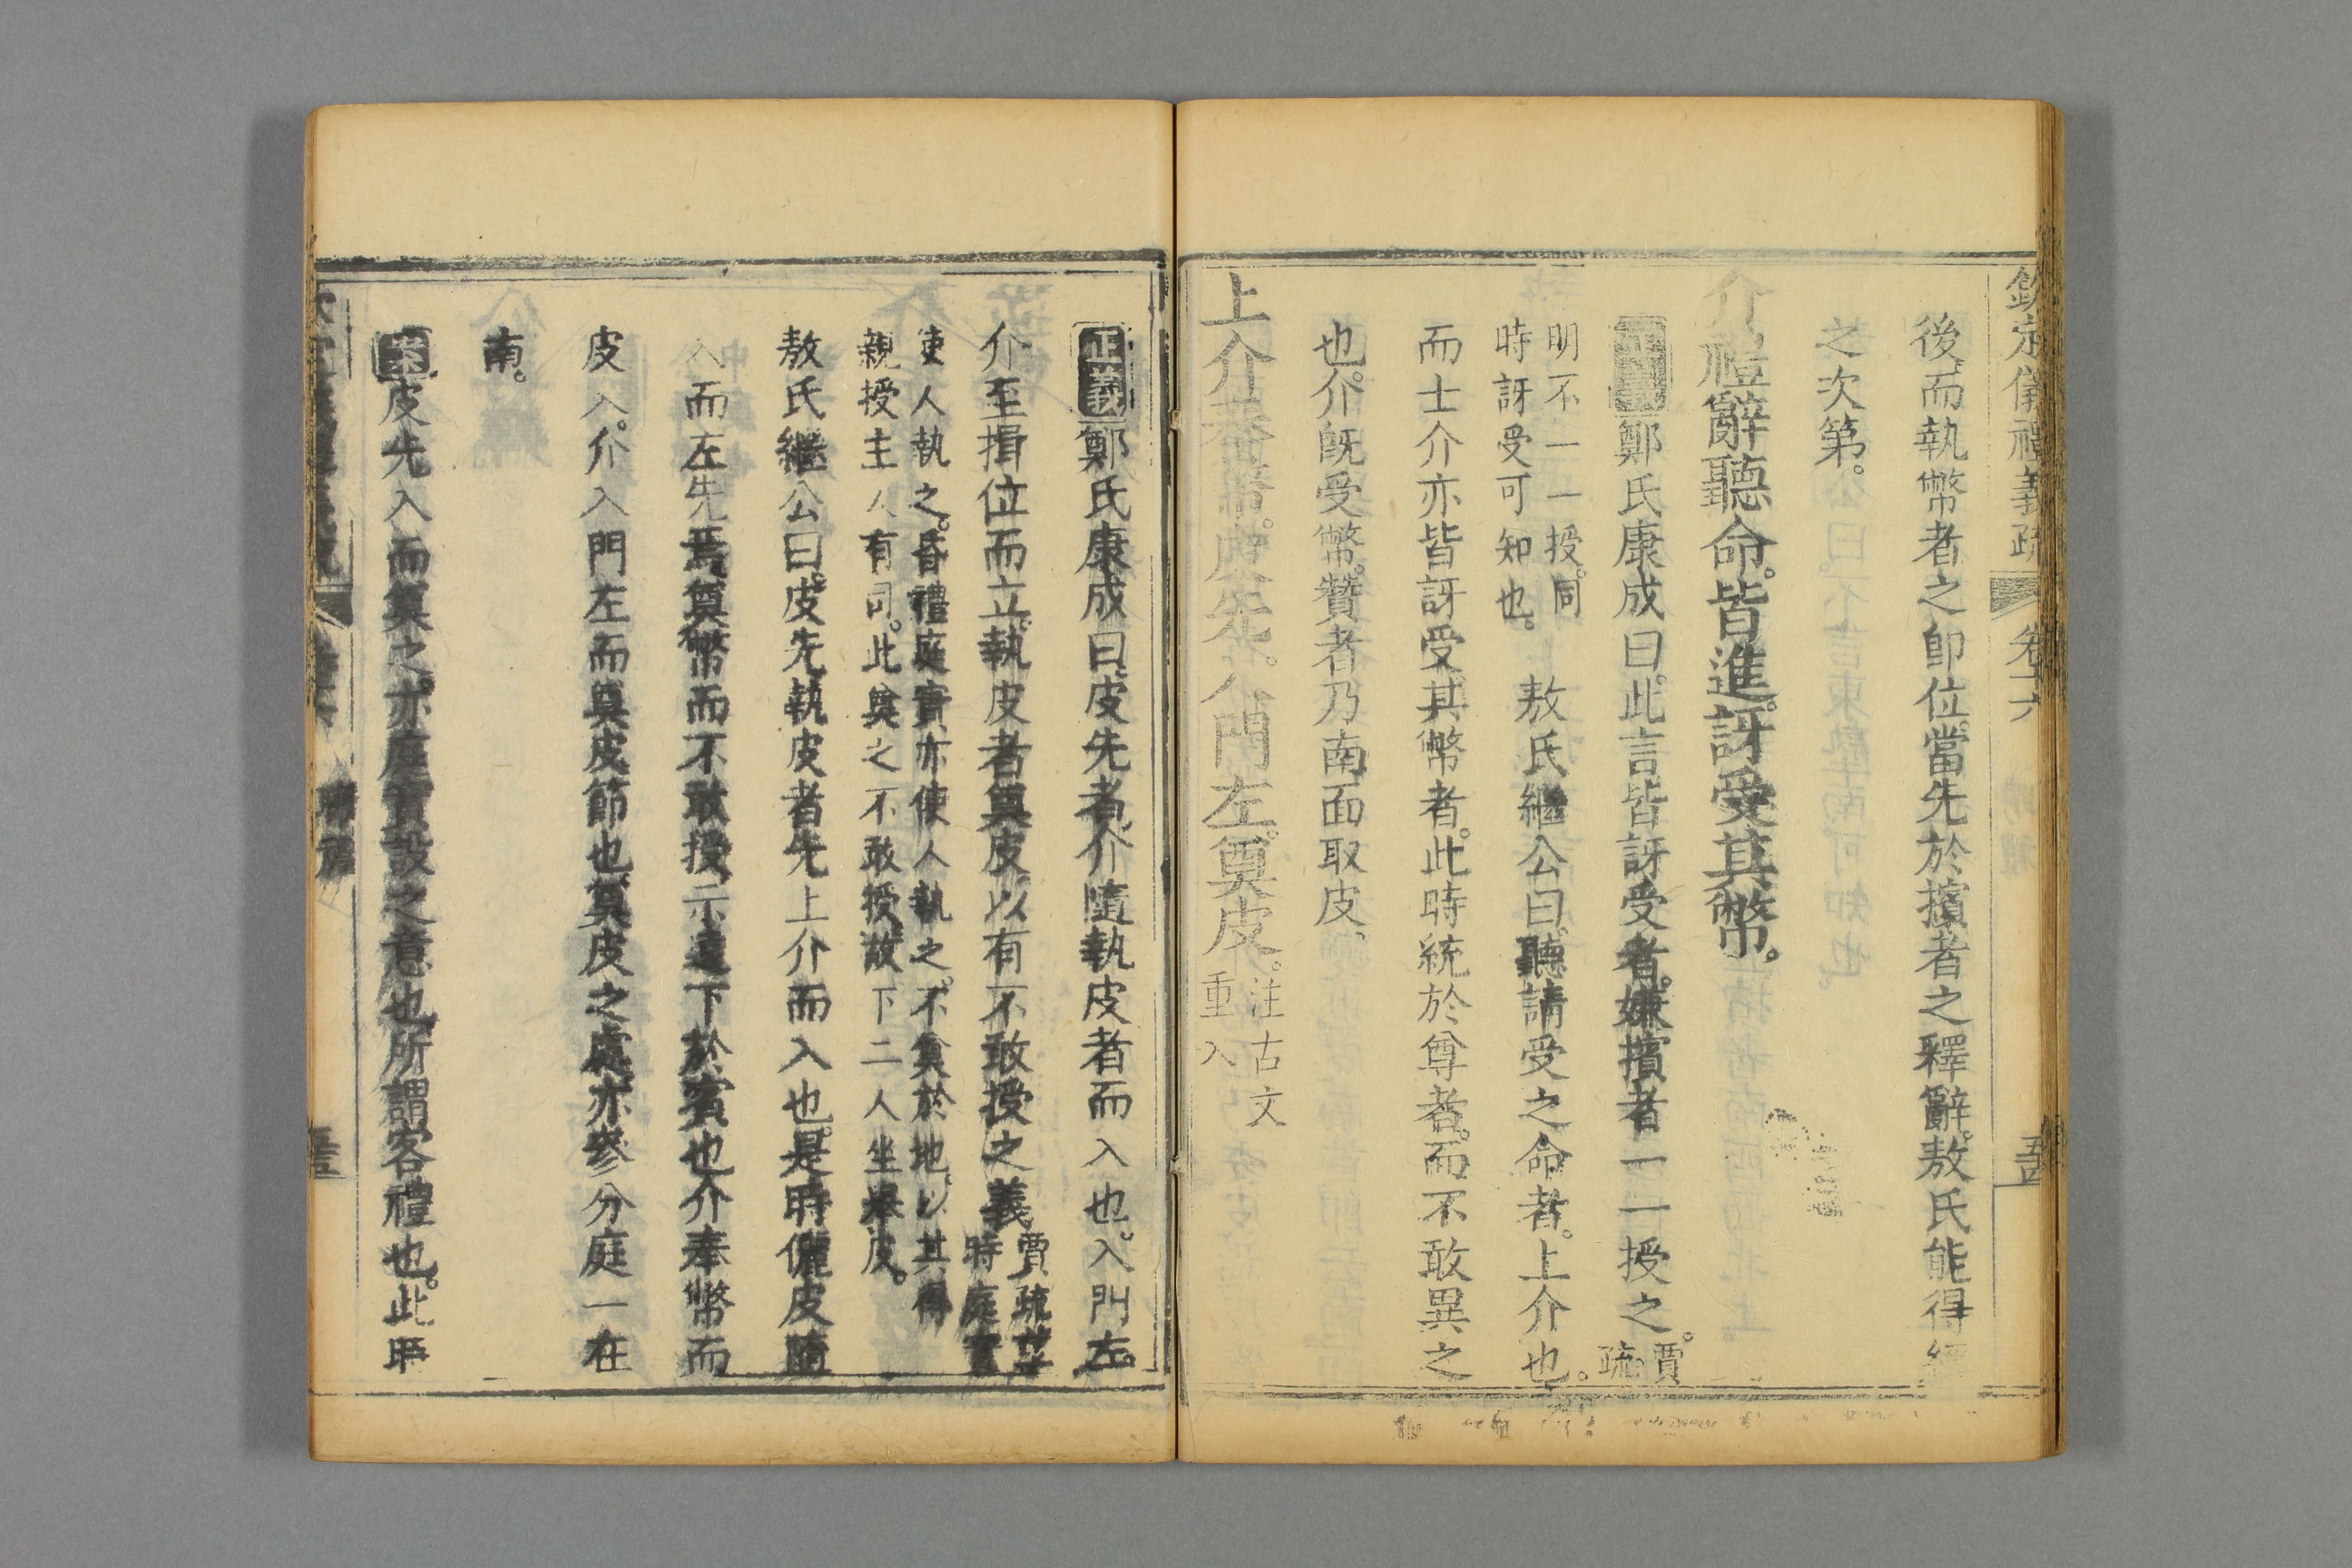 欽定儀禮義疏 卷十六 聘禮 五四
後而執幣者之卽位當先於擯者之釋辭敖氏能得經
之次第。
介禮辭聽命。皆進。訝受其幣。
正義鄭氏康成曰。此言皆訝受者。嫌擯者一一授之。賈疏。
明不一一授。同
時訝受可知也。
敖氏繼公曰。聽請受之命者。上介也。
而士介亦皆訝受其幣者。此時統於尊者。而不敢異之
也。介旣受幣。贊者乃南面取皮。
上介奉幣。皮先。入門左。奠皮。注古文
重入
正義鄭氏康成曰。皮先者。介隨執皮者而入也。入門左。
介至揖位而立。執皮者奠皮。以有不敢授之義賈疏
特庭實
使人執之。昏禮庭實亦使人執之。不奠於地。以其得
親授主人有司。此奠之不敢授。故下二人坐舉皮。
敖氏繼公曰。皮先執皮者先上介而入也。是時儷皮隨
入而左先焉奠幣而不敢授示遠下於賓也介奉幣而
皮入。介入門左而奠皮節也。奠皮之處亦參分庭一在
南。
案皮先入而奠之。亦庭實設之意也。所謂客禮也。此時
聘禮 五